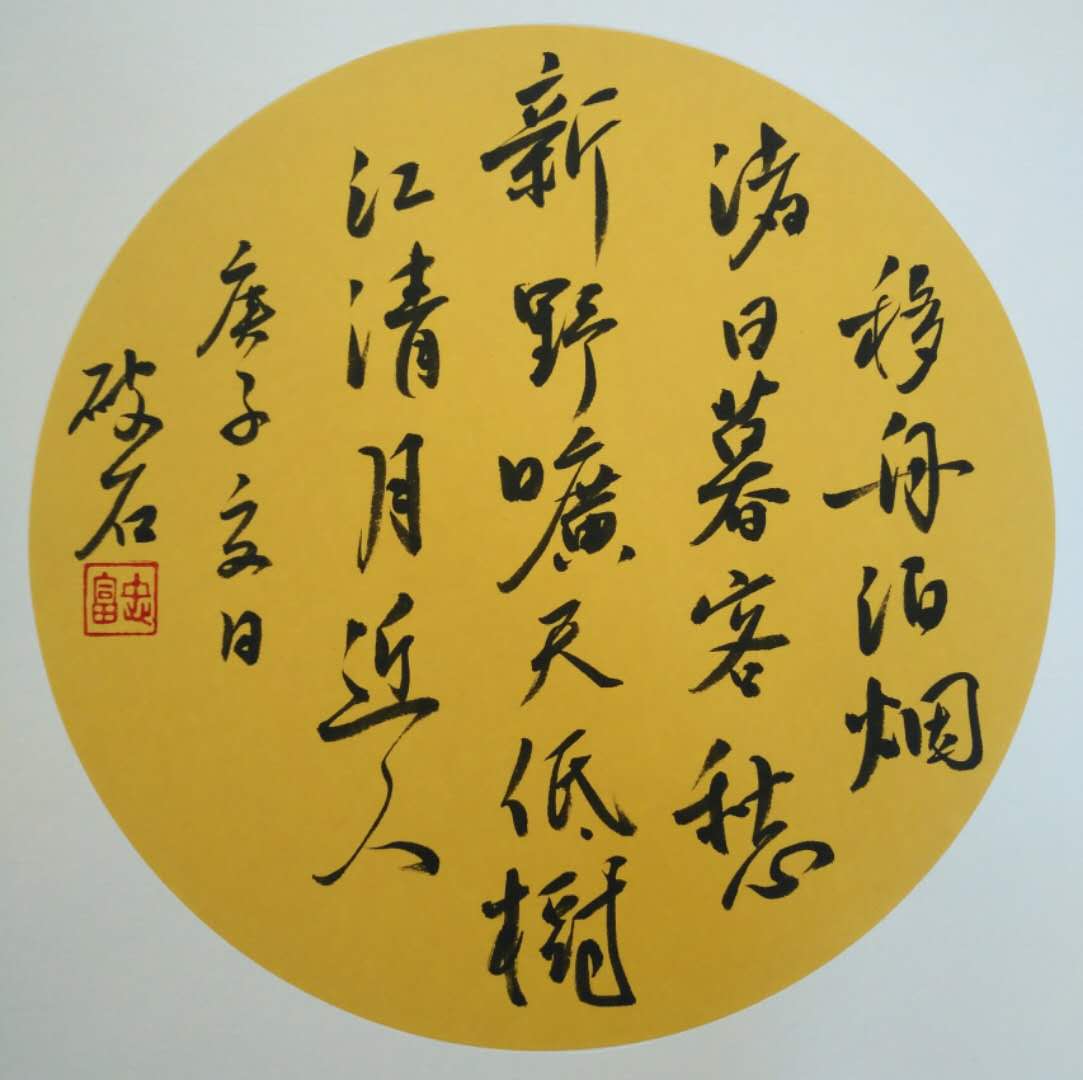 移舟泊烟
渚日暮客愁
新野曠天低樹
江清月近人
庚子夏日
破石
忠富